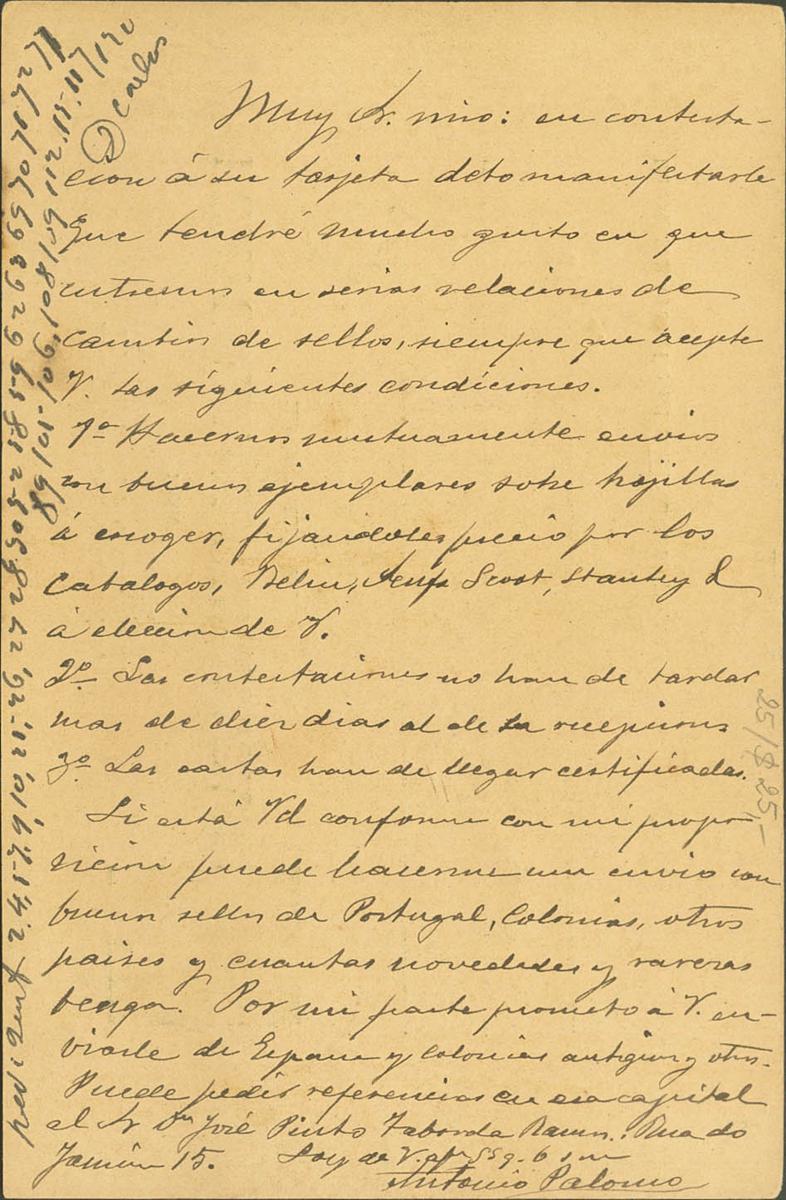 Muy Sr. mio: en contesta-
cion á su tarjeta debo manifestarle
que tendré mucho gusto en que
entremos en serias relaciones de
cambio de sellos, siempre que acepte
V. las siguientes condiciones.
1ª Hacernos mutuamente envios
con buenos ejemplares sobre hojillas
á escoger, fijandoles precio por los
catalogos, Senf, Scoot, Stanley &
á eleccion de V.
2ª Las contestaciones no han de tardar
mas de diez dias al de la recepcion
3ª Las cartas han de llegar certificadas.
Si está Vd conforme con mi propo-
sicion puede hacerme un envio con
buenos sellos de Portugal, Colonias, otros
paises y cuantas novedades y rarezas
tenga. Por mi parte prometo á V. en-
viarle de España y colonias antiguos y otros.
Puede pedir referencias en esa capital
al Sr Dn José Pinto Taborda Ramos: Rua do
Jasmim 15. Soy de V. af
Antonio Palomo
Carlos
25/8 25,-